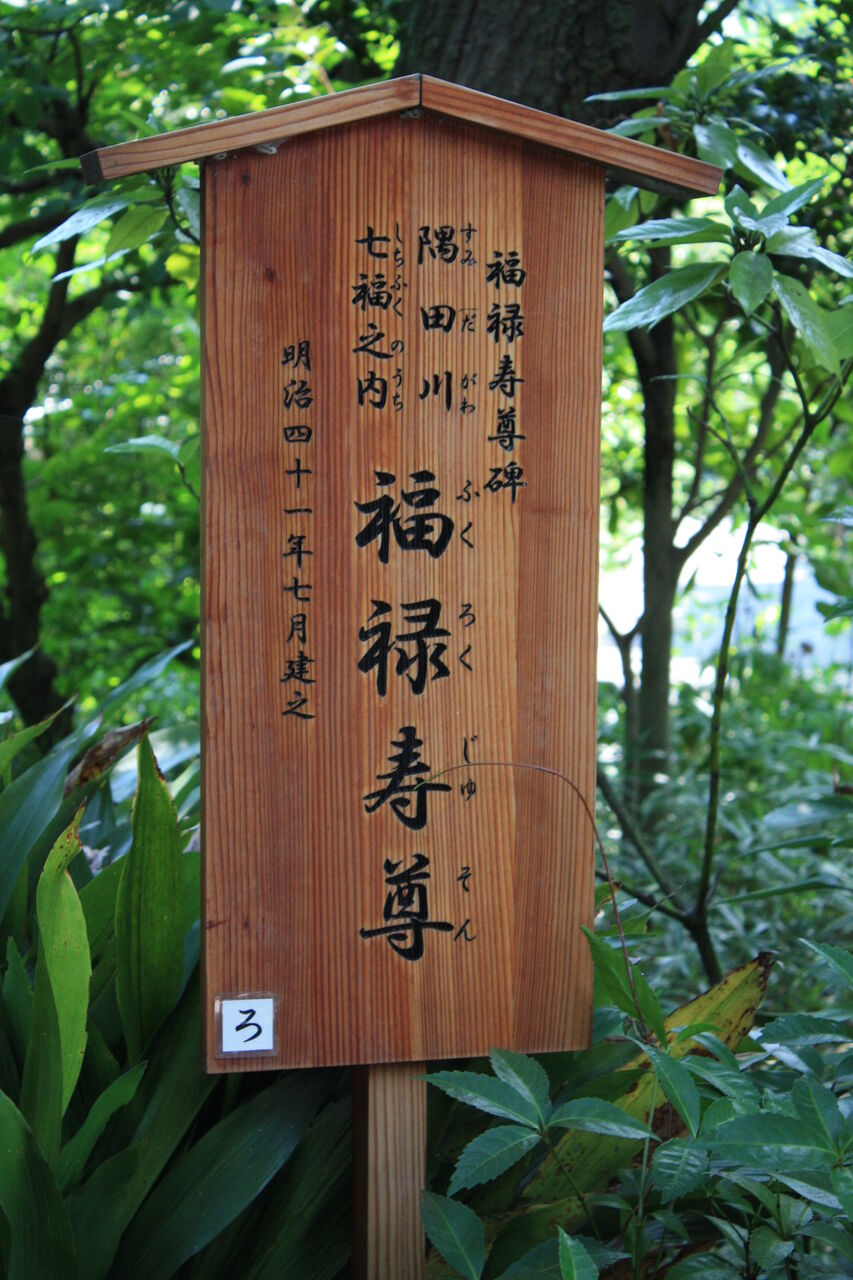 福禄寿尊碑
隅田川
すみだがわ
七福之内
しちふくのうち
福禄寿尊
ふくろくじゅそん
明治四十一年七月建之
ろ